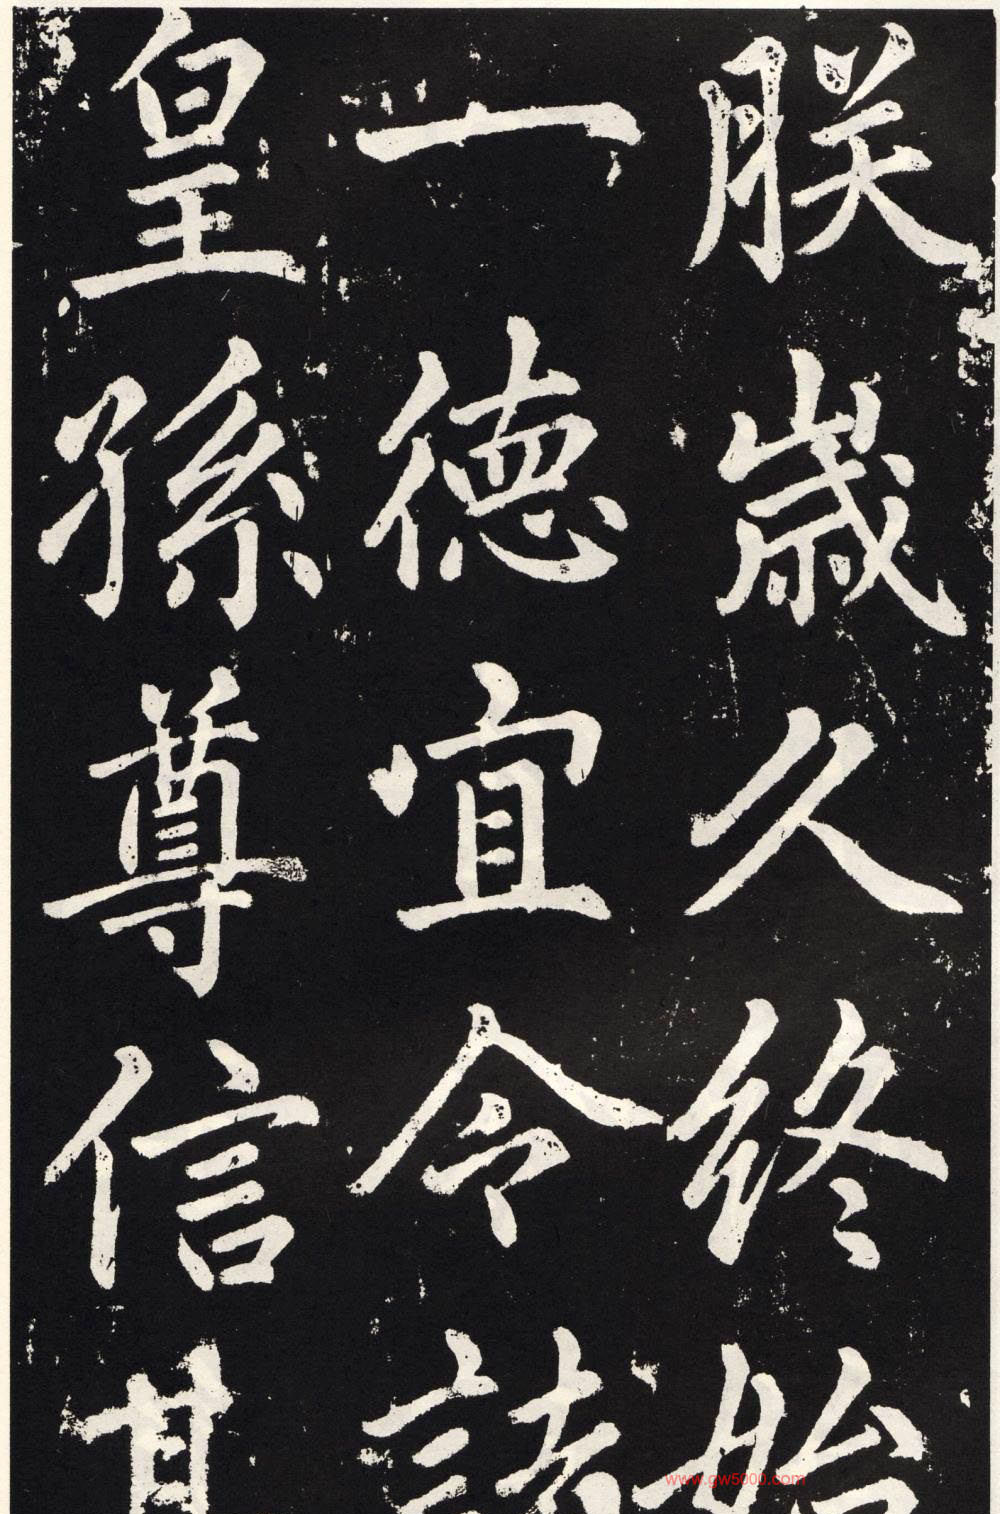 朕歳久終始
一德宜令諸
皇孫尊信其
www.gw5000.com